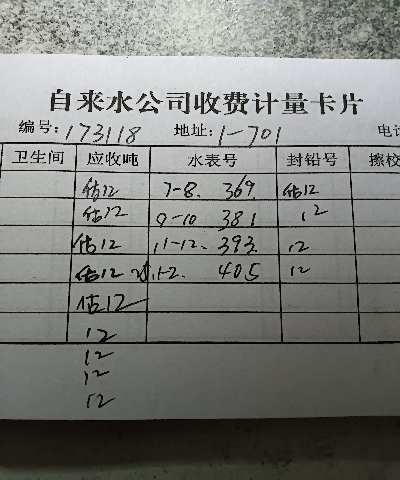 自来水公司收费计量卡片
编号: 173118 地址: 1-701 电
卫生间 应收吨 水表号 封铅号 擦校
估12 7-8. 369. 估12
估12 9-10 381 12
估12 11-12. 393. 12
估12 1-2. 405 12
估12
12
12
12
12